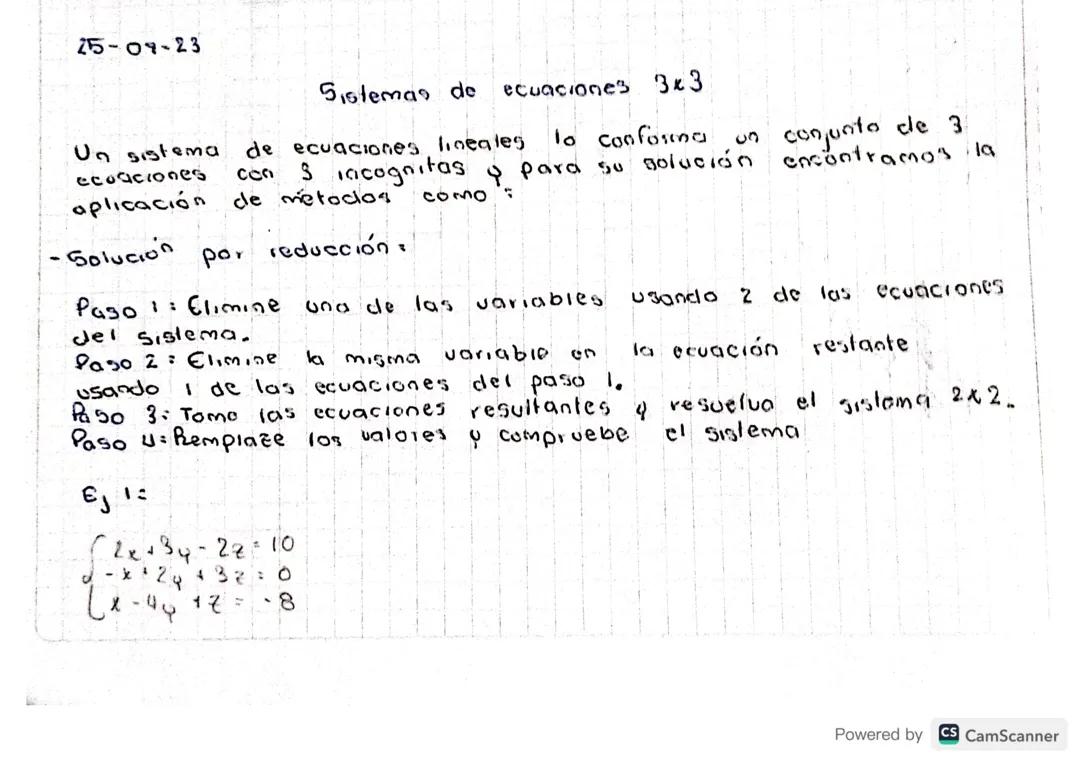 25-09-23
Sistemas de ecuaciones 3x3
Un sistema de ecuaciones lineales lo conforma un conjunto de 3
ecuaciones con 3 incognitas y para su solución encontramos la
aplicación de métodos como:
- Solución por reducción:
Paso 1: Elimine una de las variables usando 2 de las ecuaciones
del sistema.
Paso 2: Elimine la misma variable en la ecuación restante
usando 1 de las ecuaciones del paso 1.
Paso 3: Tome las ecuaciones resultantes y resuelva el sistema 2x2.
Paso 4: Remplaze los valores y compruebe el sistema
Ej 1:
2x+3y-2z=10
-x+2y+3z=0
x-4y+z=-8
Powered by CS CamScanner